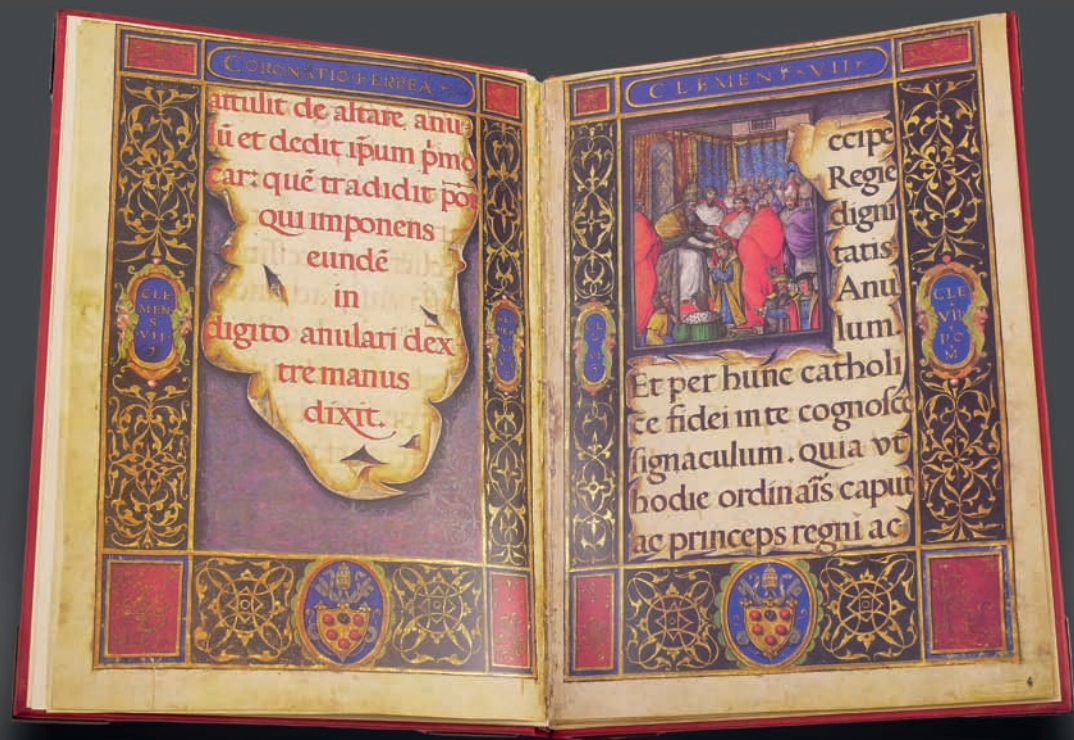 CORONATIO FERREA
attulit de altare anu
lū et dedit ip̄um p̄mo
car: quē tradidit
qui imponens
eundē
in
digito anulari dex
tre manus
dixit.
CLE
MEN
S
VII
CLEMENT VII
ccipe
Regie
digni
tatis
Anu
lum.
Et per hunc catholi
ce fidei in te cognosce
signaculum. quia vt
hodie ordinaīs caput
ac princeps regni ac
CLE
VII
PO
M